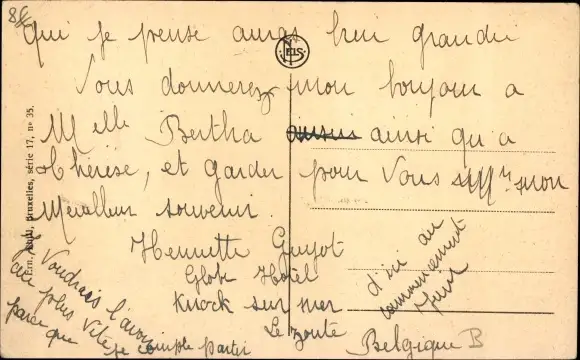 qui je pense auras bien grandi
Vous donnerez mon bonjour a
Melle Bertha ainsi qu'a
Thérèse, et garder pour Vous mon
Meilleur souvenir.
Henriette Guyot
Globe Hotel
Knock sur mer
Le Zoute
Belgique B
Je Voudrais l'avoir
au plus Vite
parce que je compte partir
d'ici au
commencement
Ern. Thill, Bruxelles, série 17, n° 35.
NELS